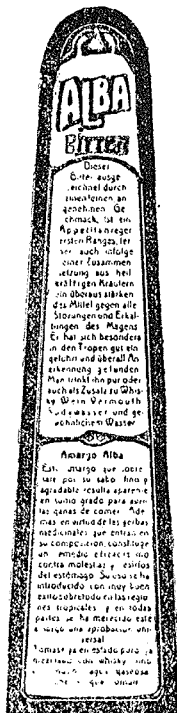 ALBA
BITTER
Dieser
Bitter ausge
zeichnet durch
einen feinen an
genehmen Ge
chmack, ist ein
Appetitanreger
ersten Ranges, fer
ner auch infolge
einer Zusammen
setzung aus heil
kräftigen Kräutern
ein überaus stärken
des Mittel gegen alle
Störungen und Erkäl
tungen des Magens
Er hat sich besonders
in den Tropen gut ein
geführt und überall An
erkennung gefunden
Man trinkt ihn pur oder
auch als Zusatz zu Whis
ky Wein Vermouth
Sodawasser und ge
wöhnlichem Wasser
Amargo Alba
Este amargo que
por su sabo fino y
agradable resulta aparente
en sumo grado para abrir
las ganas de comer Ade
mas en virtud de las yerbas
medicinales que entran en
su composicion, constituye
un remedio eficacisimo
contra molestias y
del estómago Su uso se ha
introducido con muy buen
exito sobre todo en las regio
nes tropicales y en todas
partes se ha merecido este
amargo una aprobacion uni
versal
Tomase ya en estado puro ya
mezclado con whisky vino
agua gaseosa